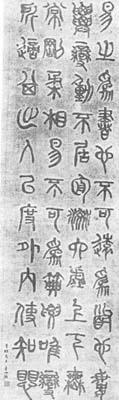 易之為書也不可遠為道也屢
遷變動不居周流六虛上下无
常剛柔相易不可為典要唯變
所適其出入以度外內使知懼